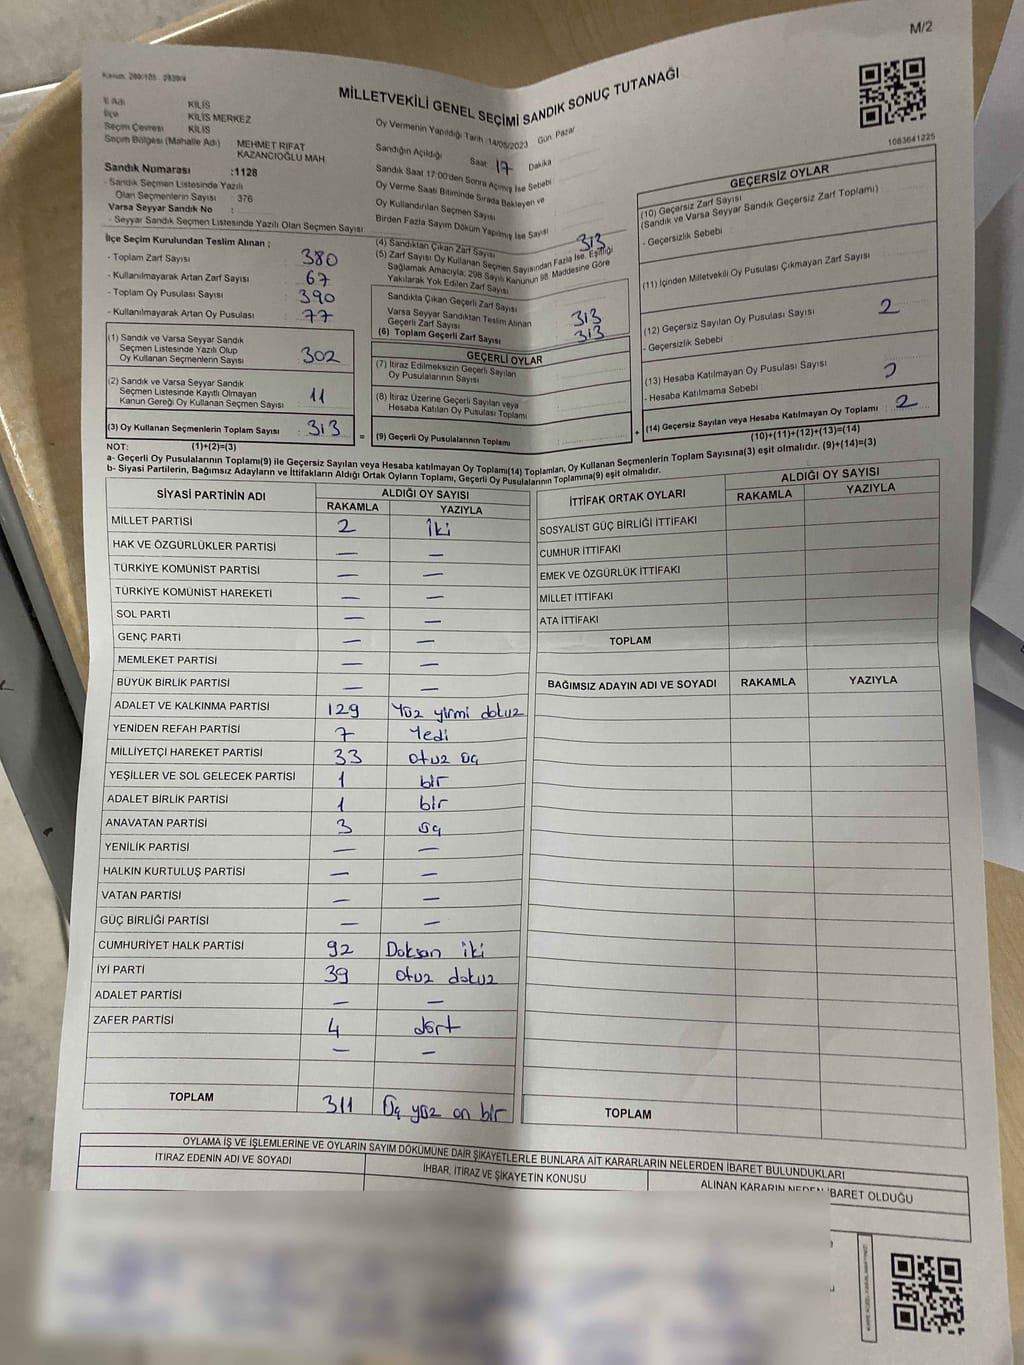 M/2
MİLLETVEKİLİ GENEL SEÇİMİ SANDIK SONUÇ TUTANAĞI
1083641225
İl Adı KİLİS
İlçe KİLİS MERKEZ
Seçim Çevresi KİLİS
Seçim Bölgesi (Mahalle Adı) MEHMET RIFAT KAZANCIOĞLU MAH
Sandık Numarası :1128
- Sandık Seçmen Listesinde Yazılı
Olan Seçmenlerin Sayısı : 376
Varsa Seyyar Sandık No :
- Seyyar Sandık Seçmen Listesinde Yazılı Olan Seçmen Sayısı
Oy Vermenin Yapıldığı Tarih :14/05/2023 Gün: Pazar
Sandığın Açıldığı Saat 17 Dakika
Sandık Saat 17:00'den Sonra Açılmış İse Sebebi
Oy Verme Saati Bitiminde Sırada Bekleyen ve
Oy Kullandırılan Seçmen Sayısı
Birden Fazla Sayım Döküm Yapılmış İse Sayısı
İlçe Seçim Kurulundan Teslim Alınan ;
- Toplam Zarf Sayısı : 380
- Kullanılmayarak Artan Zarf Sayısı : 67
- Toplam Oy Pusulası Sayısı : 390
- Kullanılmayarak Artan Oy Pusulası : 77
(1) Sandık ve Varsa Seyyar Sandık
Seçmen Listesinde Yazılı Olup
Oy Kullanan Seçmenlerin Sayısı 302
(2) Sandık ve Varsa Seyyar Sandık
Seçmen Listesinde Kayıtlı Olmayan
Kanun Gereği Oy Kullanan Seçmen Sayısı 11
(3) Oy Kullanan Seçmenlerin Toplam Sayısı 313
(4) Sandıktan Çıkan Zarf Sayısı 313
(5) Zarf Sayısı Oy Kullanan Seçmen Sayısından Fazla İse, Eşitliği
Sağlamak Amacıyla; 298 Sayılı Kanunun 98. Maddesine Göre
Yakılarak Yok Edilen Zarf Sayısı
Sandıkta Çıkan Geçerli Zarf Sayısı
Varsa Seyyar Sandıktan Teslim Alınan
Geçerli Zarf Sayısı 313
(6) Toplam Geçerli Zarf Sayısı 313
GEÇERLİ OYLAR
(7) İtiraz Edilmeksizin Geçerli Sayılan
Oy Pusulalarının Sayısı
(8) İtiraz Üzerine Geçerli Sayılan veya
Hesaba Katılan Oy Pusulası Toplamı
= (9) Geçerli Oy Pusulalarının Toplamı
GEÇERSİZ OYLAR
(10) Geçersiz Zarf Sayısı
(Sandık ve Varsa Seyyar Sandık Geçersiz Zarf Toplamı)
- Geçersizlik Sebebi
(11) İçinden Milletvekili Oy Pusulası Çıkmayan Zarf Sayısı
(12) Geçersiz Sayılan Oy Pusulası Sayısı 2
- Geçersizlik Sebebi
(13) Hesaba Katılmayan Oy Pusulası Sayısı
- Hesaba Katılmama Sebebi
+ (14) Geçersiz Sayılan veya Hesaba Katılmayan Oy Toplamı 2
NOT: (1)+(2)=(3)
(10)+(11)+(12)+(13)=(14)
a- Geçerli Oy Pusulalarının Toplamı(9) ile Geçersiz Sayılan veya Hesaba katılmayan Oy Toplamı(14) Toplamları, Oy Kullanan Seçmenlerin Toplam Sayısına(3) eşit olmalıdır. (9)+(14)=(3)
b- Siyasi Partilerin, Bağımsız Adayların ve İttifakların Aldığı Ortak Oyların Toplamı, Geçerli Oy Pusulalarının Toplamına(9) eşit olmalıdır.
SİYASİ PARTİNİN ADI ALDIĞI OY SAYISI
RAKAMLA YAZIYLA
MİLLET PARTİSİ 2 İki
HAK VE ÖZGÜRLÜKLER PARTİSİ — —
TÜRKİYE KOMÜNİST PARTİSİ — —
TÜRKİYE KOMÜNİST HAREKETİ — —
SOL PARTİ — —
GENÇ PARTİ — —
MEMLEKET PARTİSİ — —
BÜYÜK BİRLİK PARTİSİ — —
ADALET VE KALKINMA PARTİSİ 129 Yüz yirmi dokuz
YENİDEN REFAH PARTİSİ 7 Yedi
MİLLİYETÇİ HAREKET PARTİSİ 33 otuz üç
YEŞİLLER VE SOL GELECEK PARTİSİ 1 bir
ADALET BİRLİK PARTİSİ 1 bir
ANAVATAN PARTİSİ 3 üç
YENİLİK PARTİSİ — —
HALKIN KURTULUŞ PARTİSİ — —
VATAN PARTİSİ — —
GÜÇ BİRLİĞİ PARTİSİ — —
CUMHURİYET HALK PARTİSİ 92 Doksan iki
İYİ PARTİ 39 otuz dokuz
ADALET PARTİSİ — —
ZAFER PARTİSİ 4 dört
— —
TOPLAM 311 Üç yüz on bir
İTTİFAK ORTAK OYLARI ALDIĞI OY SAYISI
RAKAMLA YAZIYLA
SOSYALİST GÜÇ BİRLİĞİ İTTİFAKI
CUMHUR İTTİFAKI
EMEK VE ÖZGÜRLÜK İTTİFAKI
MİLLET İTTİFAKI
ATA İTTİFAKI
TOPLAM
BAĞIMSIZ ADAYIN ADI VE SOYADI RAKAMLA YAZIYLA
TOPLAM
OYLAMA İŞ VE İŞLEMLERİNE VE OYLARIN SAYIM DÖKÜMÜNE DAİR ŞİKAYETLERLE BUNLARA AİT KARARLARIN NELERDEN İBARET BULUNDUKLARI
İTİRAZ EDENİN ADI VE SOYADI İHBAR, İTİRAZ VE ŞİKAYETİN KONUSU ALINAN KARARIN İBARET OLDUĞU